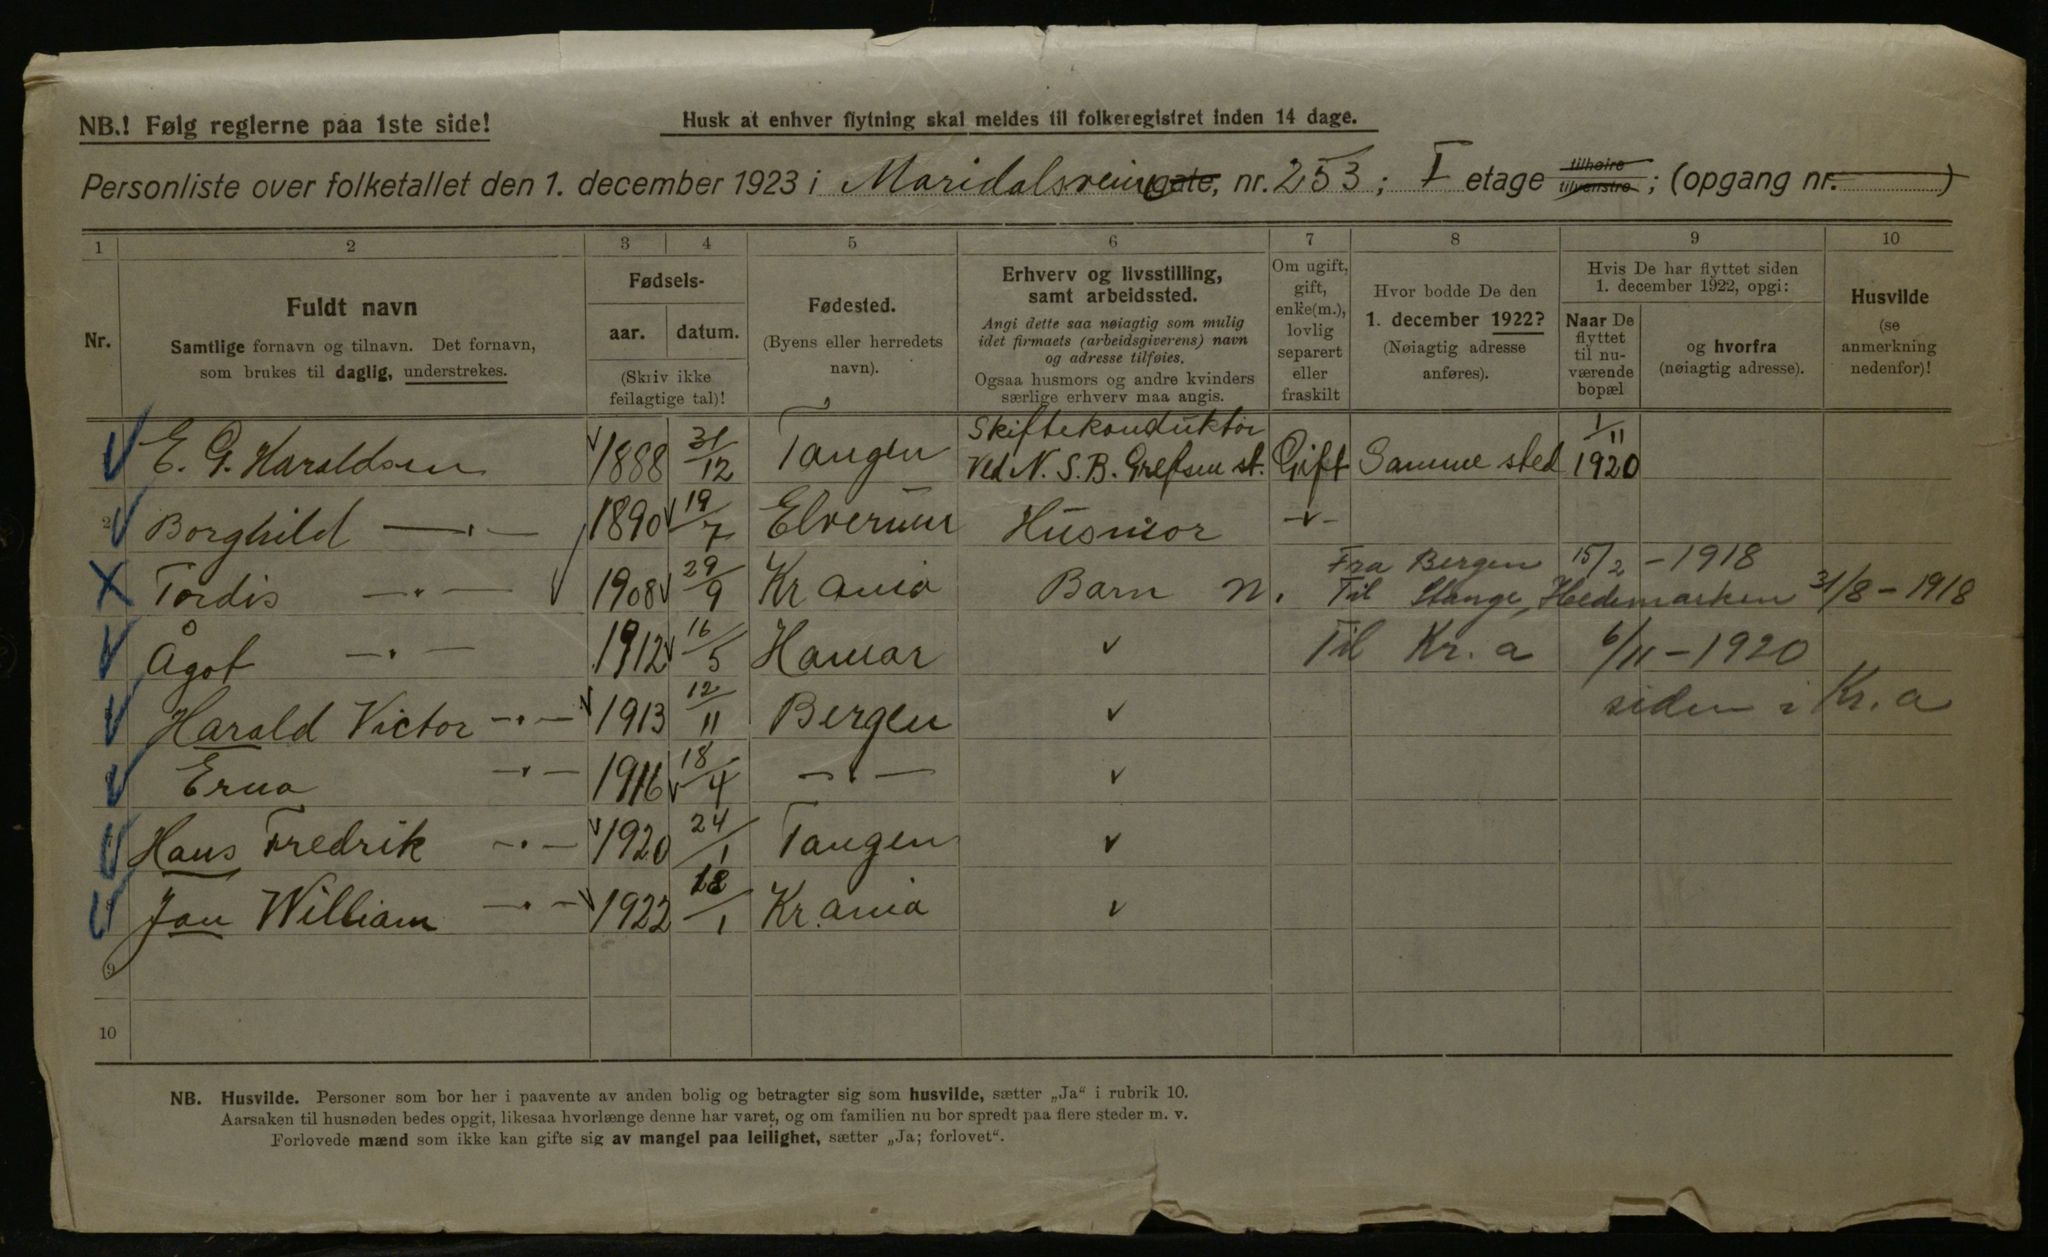 NB.! Følg reglerne paa 1ste side!
Husk at enhver flytning skal meldes til folkeregistret inden 14 dage.
Personliste over folketallet den 1. december 1923 i Maridalsveien gate, nr. 253; I etage tilhøire tilvenstre; (opgang nr. )
1 2 3 4 5 6 7 8 9 10
Nr.
Fuldt navn
Samtlige fornavn og tilnavn. Det fornavn,
som brukes til daglig, understrekes.
Fødsels-
aar. datum.
(Skriv ikke
feilagtige tal)!
Fødested.
(Byens eller herredets
navn).
Erhverv og livsstilling,
samt arbeidssted.
Angi dette saa nøiagtig som mulig
idet firmaets (arbeidsgiverens) navn
og adresse tilføies.
Ogsaa husmors og andre kvinders
særlige erhverv maa angis.
Om ugift,
gift,
enke(m.),
lovlig
separert
eller
fraskilt
Hvor bodde De den
1. december 1922?
(Nøiagtig adresse
anføres).
Hvis De har flyttet siden
1. december 1922, opgi:
Naar De
flyttet
til nu-
værende
bopæl
og hvorfra
(nøiagtig adresse).
Husvilde
(se
anmerkning
nedenfor)!
E. G. Haraldsen 1888 31/12 Tangen Skiftekonduktør Ved N. S. B. Grefsen st. Gift Samme sted 1/11 1920
2 Borghild —"— 1890 19/7 Elverum Husmor —"—
Tordis —"— 1908 29/9 Kr.ania Barn n. Fra Bergen 15/2 - 1918
Til Stange, Hedemarken 31/8 - 1918
Ågot —"— 1912 16/5 Hamar " Til Kr.a 6/11 - 1920
Harald Victor —"— 1913 12/11 Bergen " siden i Kr.a
Erna —"— 1916 18/4 —"— "
Hans Fredrik —"— 1920 24/1 Tangen "
Jan William —"— 1922 18/1 Kr.ania "
9
10
NB. Husvilde. Personer som bor her i paavente av anden bolig og betragter sig som husvilde, sætter „Ja“ i rubrik 10.
Aarsaken til husnøden bedes opgit, likesaa hvorlænge denne har varet, og om familien nu bor spredt paa flere steder m. v.
Forlovede mænd som ikke kan gifte sig av mangel paa leilighet, sætter „Ja; forlovet“.